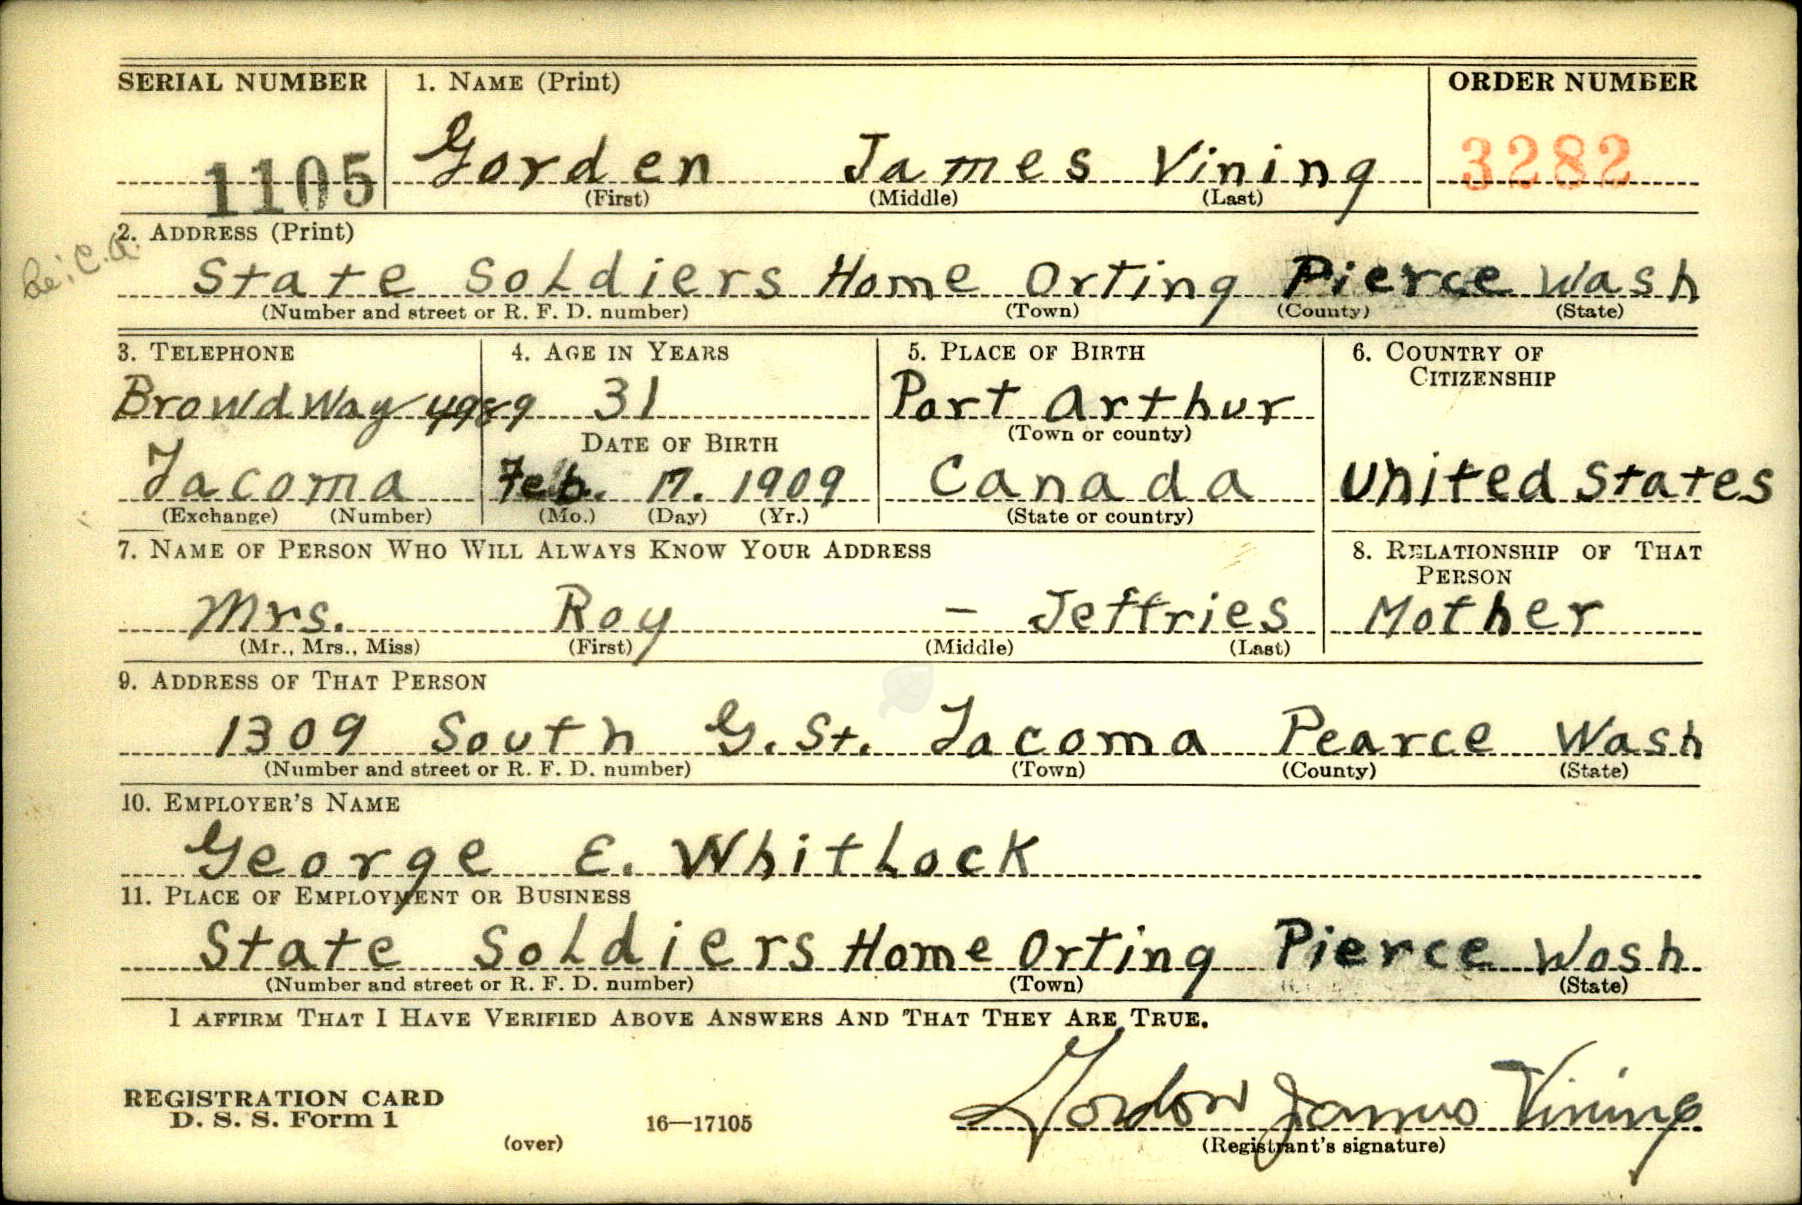 SERIAL NUMBER 1. NAME (Print) ORDER NUMBER
1105 Gorden James Vining 3282
(First) (Middle) (Last)
2. ADDRESS (Print)
State Soldiers Home Orting Pierce Wash
(Number and street or R. F. D. number) (Town) (County) (State)
3. TELEPHONE 4. AGE IN YEARS 5. PLACE OF BIRTH 6. COUNTRY OF
CITIZENSHIP
BrowdWay 4989 31 Port Arthur
(Town or county)
DATE OF BIRTH
Tacoma Feb. 17. 1909 Canada United States
(Exchange) (Number) (Mo.) (Day) (Yr.) (State or country)
7. NAME OF PERSON WHO WILL ALWAYS KNOW YOUR ADDRESS 8. RELATIONSHIP OF THAT
PERSON
Mrs. Roy – Jeffries Mother
(Mr., Mrs., Miss) (First) (Middle) (Last)
9. ADDRESS OF THAT PERSON
1309 South G. St. Tacoma Pearce Wash
(Number and street or R. F. D. number) (Town) (County) (State)
10. EMPLOYER'S NAME
George E. Whitlock
11. PLACE OF EMPLOYMENT OR BUSINESS
State Soldiers Home Orting Pierce Wash.
(Number and street or R. F. D. number) (Town) (State)
I AFFIRM THAT I HAVE VERIFIED ABOVE ANSWERS AND THAT THEY ARE TRUE.
REGISTRATION CARD
D. S. S. Form 1 16—17105 Gordon James Vining
(over) (Registrant's signature)